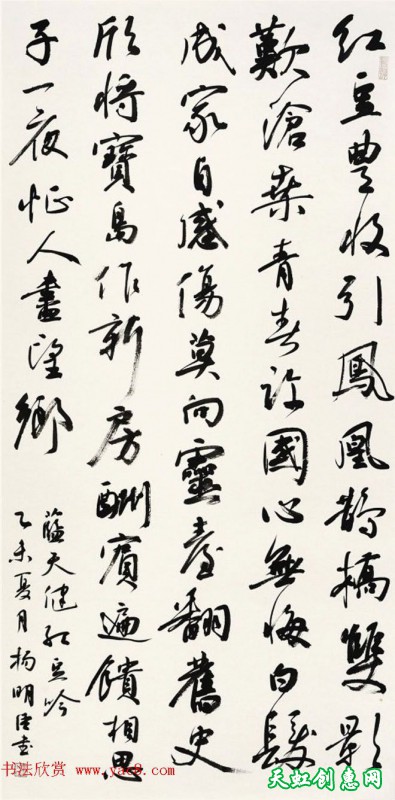 紅豆豐收引鳳凰鵲橋雙影
歎滄桑青春許國心無悔白髮
成家自感傷莫向靈臺翻舊史
欣將寶島作新房酬賓遍饋相思
子一夜征人盡望鄉
藍天健紅豆吟
乙未夏月楊明臣書
书法欣赏 www.yac8.com
天虹创惠网